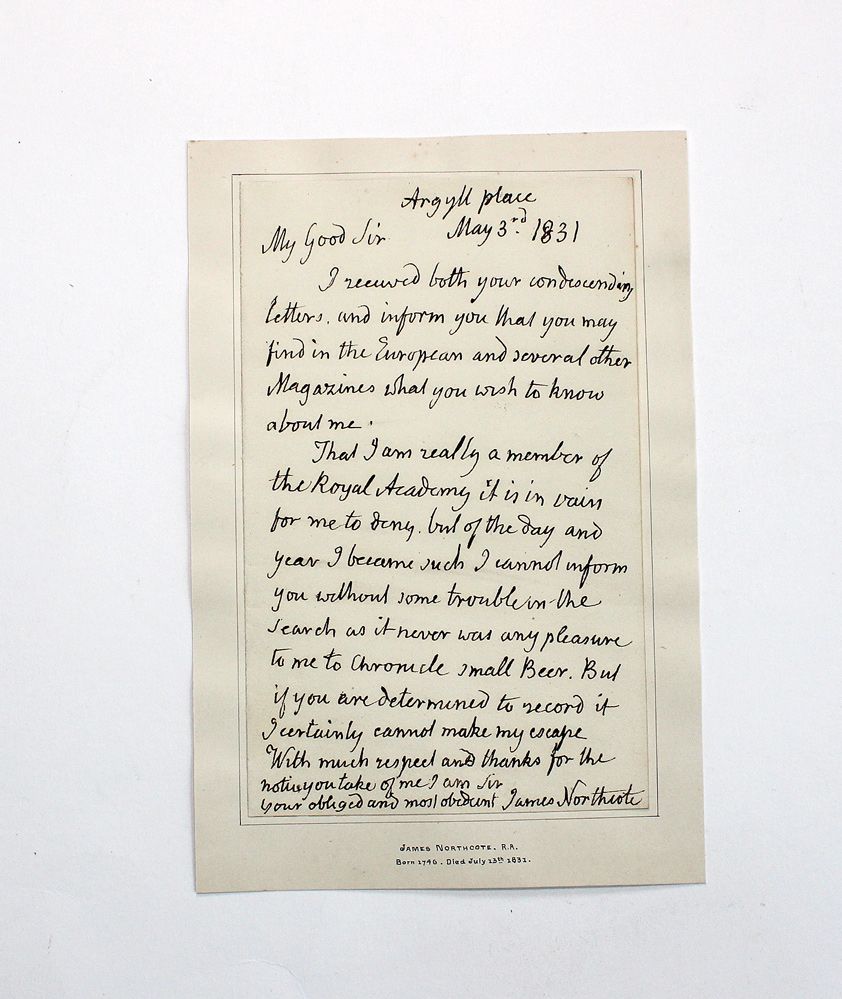 Argyll place
May 3rd 1831
My Good Sir
I received both your condescending
letters, and inform you that you may
find in the European and several other
Magazines what you wish to know
about me.
That I am really a member of
the Royal Academy it is in vain
for me to deny. but of the day and
year I became such I cannot inform
you without some trouble in the
search as it never was any pleasure
to me to Chronicle small Beer. But
if you are determined to record it
I certainly cannot make my escape
With much respect and thanks for the
notice you take of me I am Sir
your obliged and most obedient James Northcote
JAMES NORTHCOTE, R.A.
Born 1746. Died July 13th 1831.